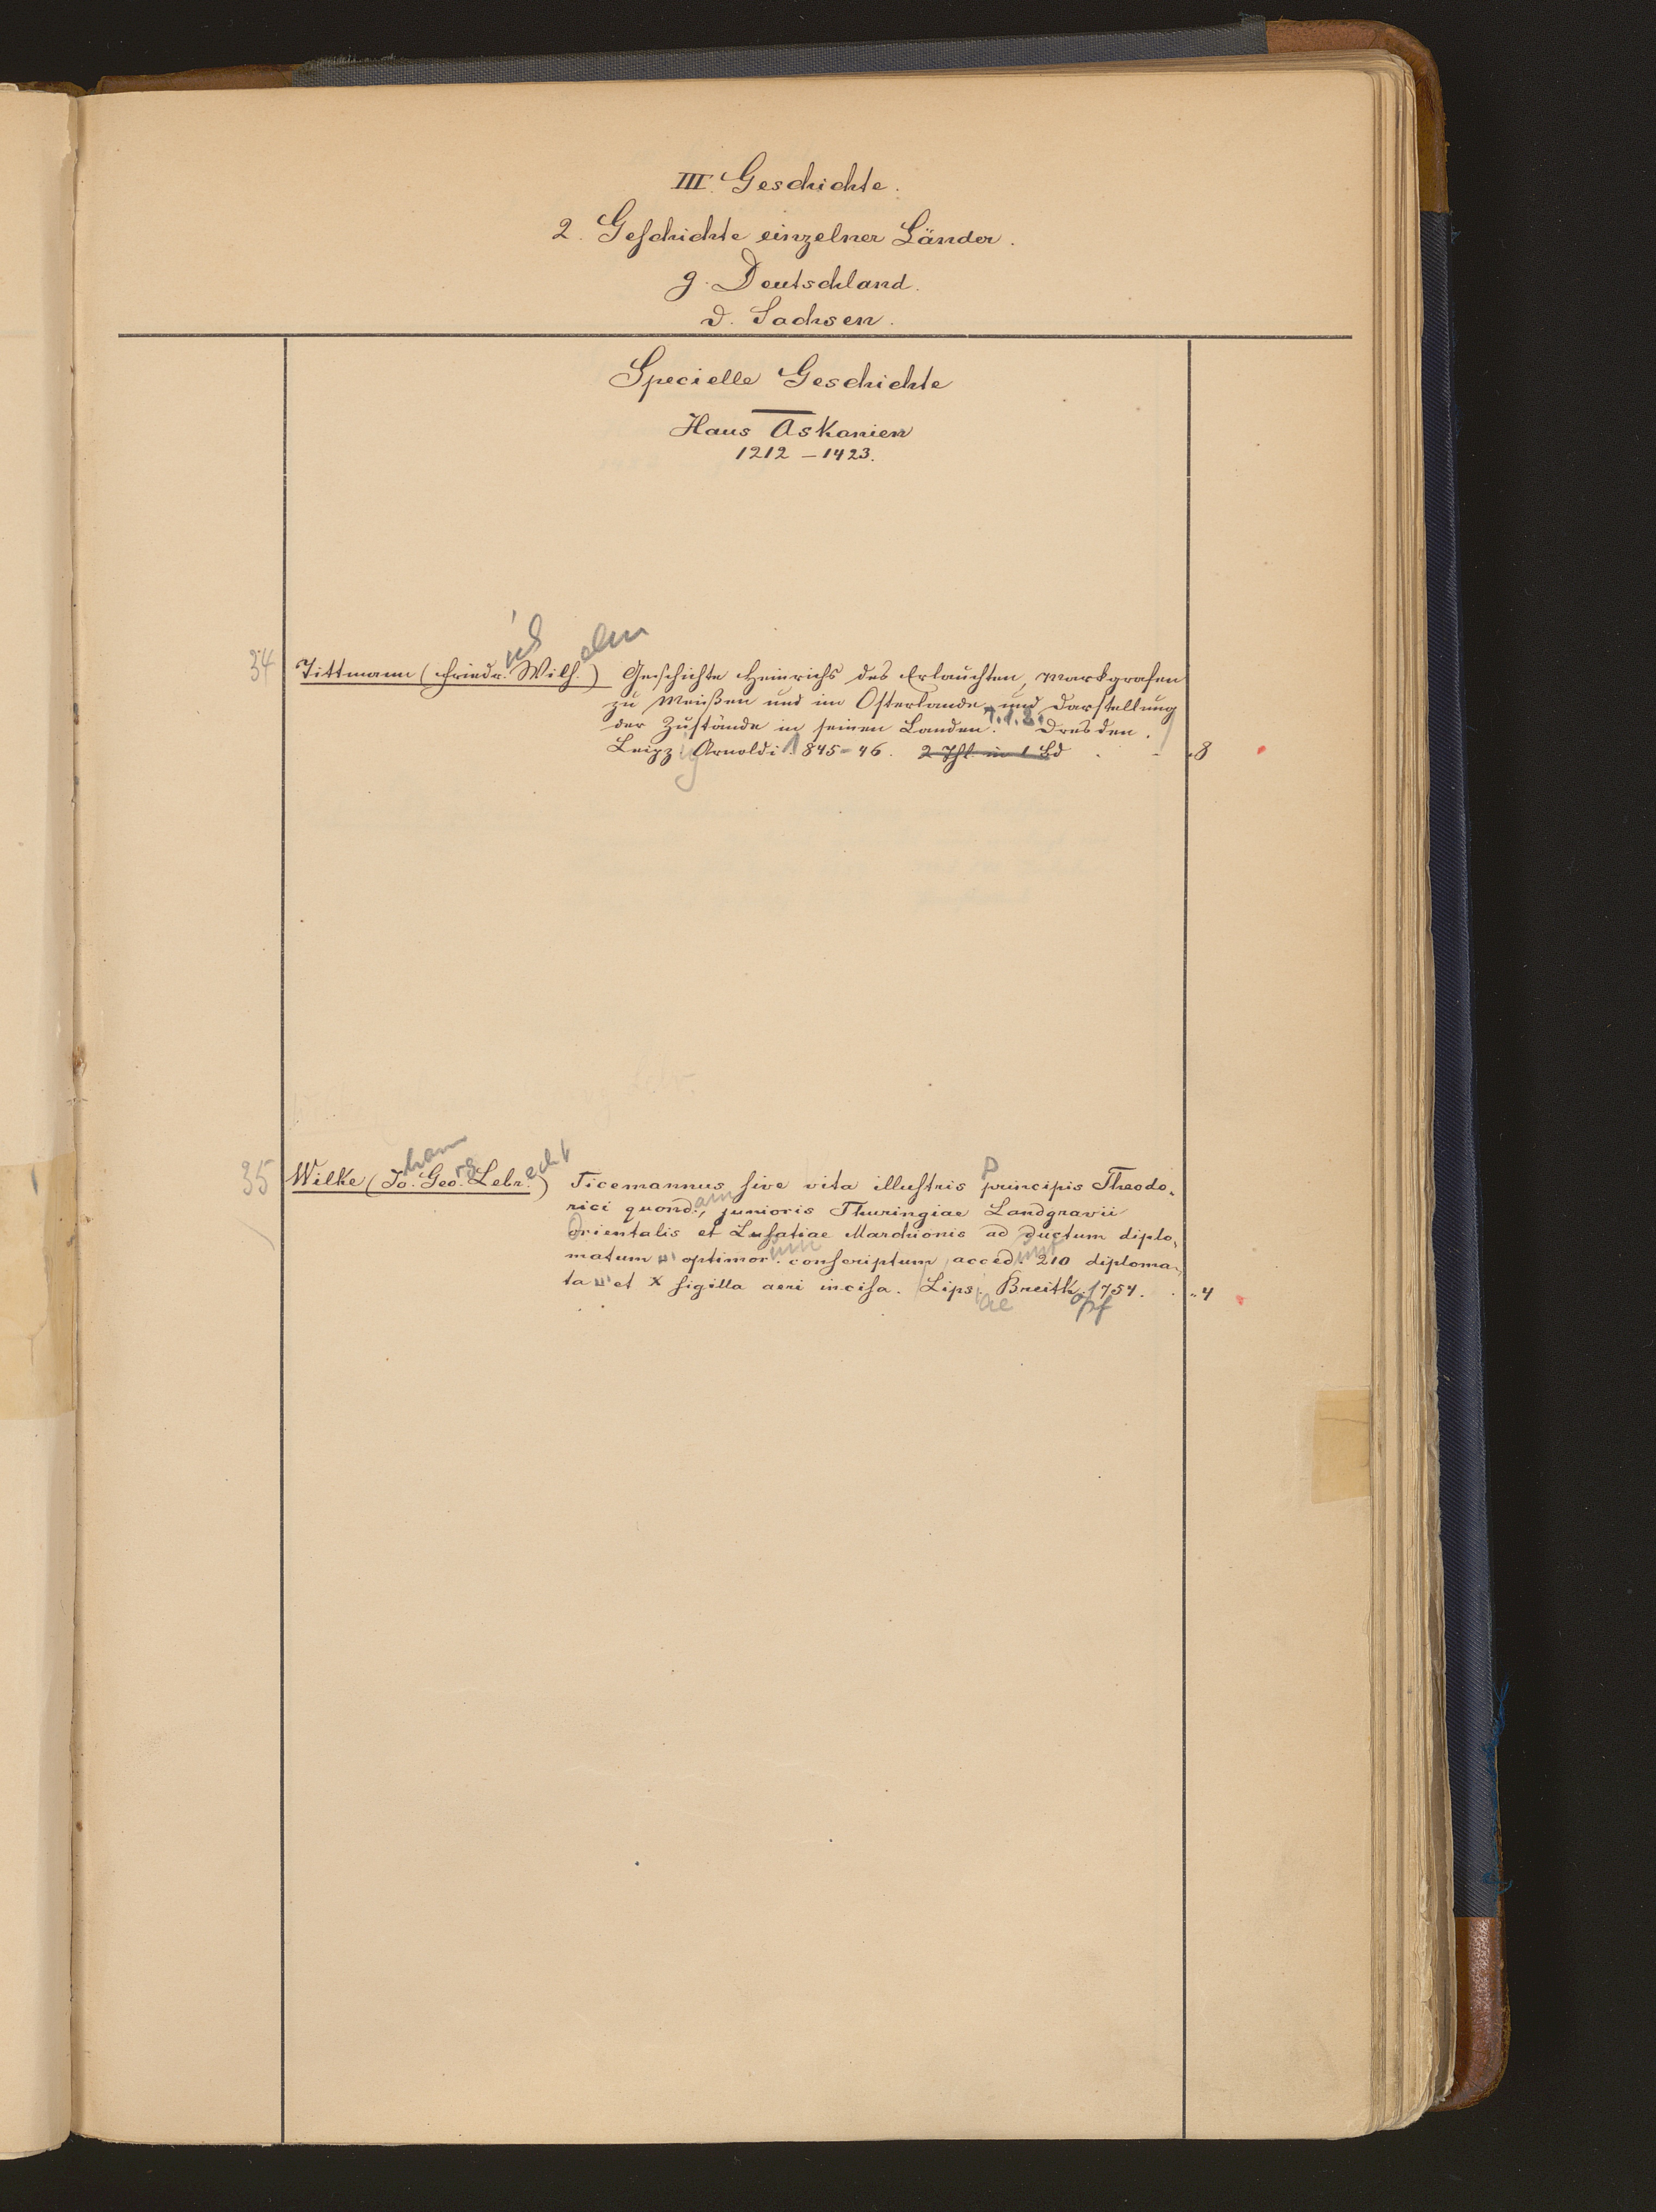 III. Geschichte.
2. Geschichte einzelner Länder.
g. Deutschland.
d. Sachsen.
Specielle Geschichte
Haus Askanien
1212 – 1423.
ich elm
34 Tittmann (Friedr. Wilh.) Geschichte Heinrichs des Erlauchten, Markgrafen
zu Meißen und im Osterlande und Darstellung
der Zustände in seinen Landen. 1.1.2. Dresden.
Leipzig Arnoldi 1845=46. 2 Thl. in 1 Bd . - . 8
hann rg echt P
35 Wilke (Jo. Geo. Lebr.) Ticemannus sive vita illustris principis Theodo-
rici quond.am, junioris Thuringiae Landgravii
Orientalis et Lusatiae Marchionis ad ductum diplo-
matum optimor.um conscriptum acced.unt 210 diploma-
ta et X sigilla aeri incisa. Lips. Breitk. 1754. . „ 4
iae opf